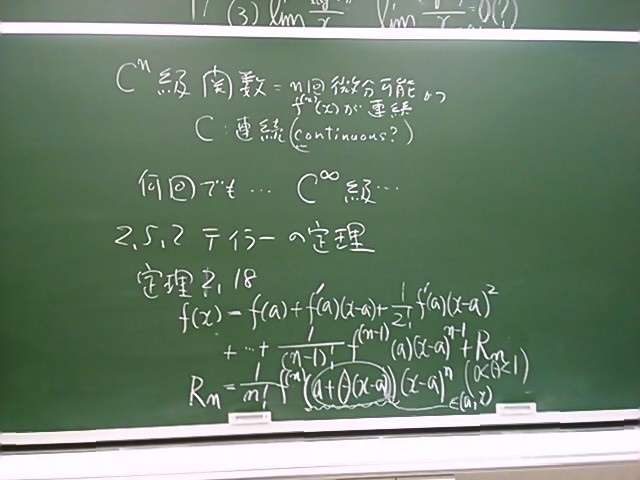 (3) lim
lim = 0(?)
Cⁿ級関数 = n回微分可能 かつ
f⁽ⁿ⁾(x)が連続
C:連続(continuous?)
何回でも… C^∞級…
2,5,2 テイラーの定理
定理2,18
f(x) = f(a) + f'(a)(x-a) + 1/2! f''(a)(x-a)²
+ … + 1/(n-1)! f⁽ⁿ⁻¹⁾(a)(x-a)ⁿ⁻¹ + Rn
Rn = 1/n! f⁽ⁿ⁾(a+θ(x-a))(x-a)ⁿ (0<θ<1)
∈(a,x)